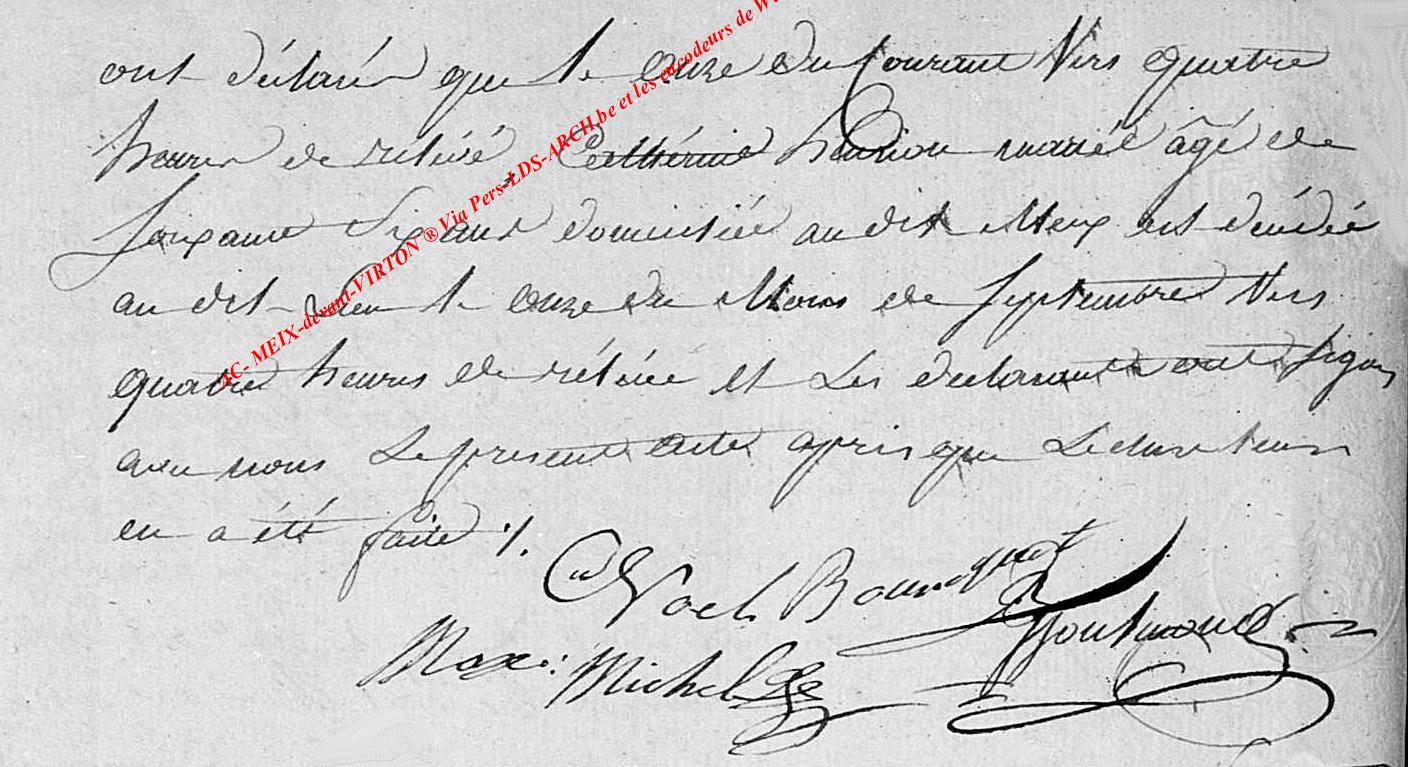 ont déclaré que le onze du Courant Vers quatre
heures de rélévé, Cathérine henrion mariée âgé de
Soixante Six ans domiciliée au dit Meix est décédée
au dit Lieu le onze du Mois de Septembre Vers
quatre heures de rélévée et Les declarants ont signé
avec nous Le present acte après que Lecture leurs
en a été faite ./.
Noel Bourguignot
Max: Michel
AC- MEIX-devant-VIRTON ® Via Pers-LDS-ARCH.be et les encodeurs de